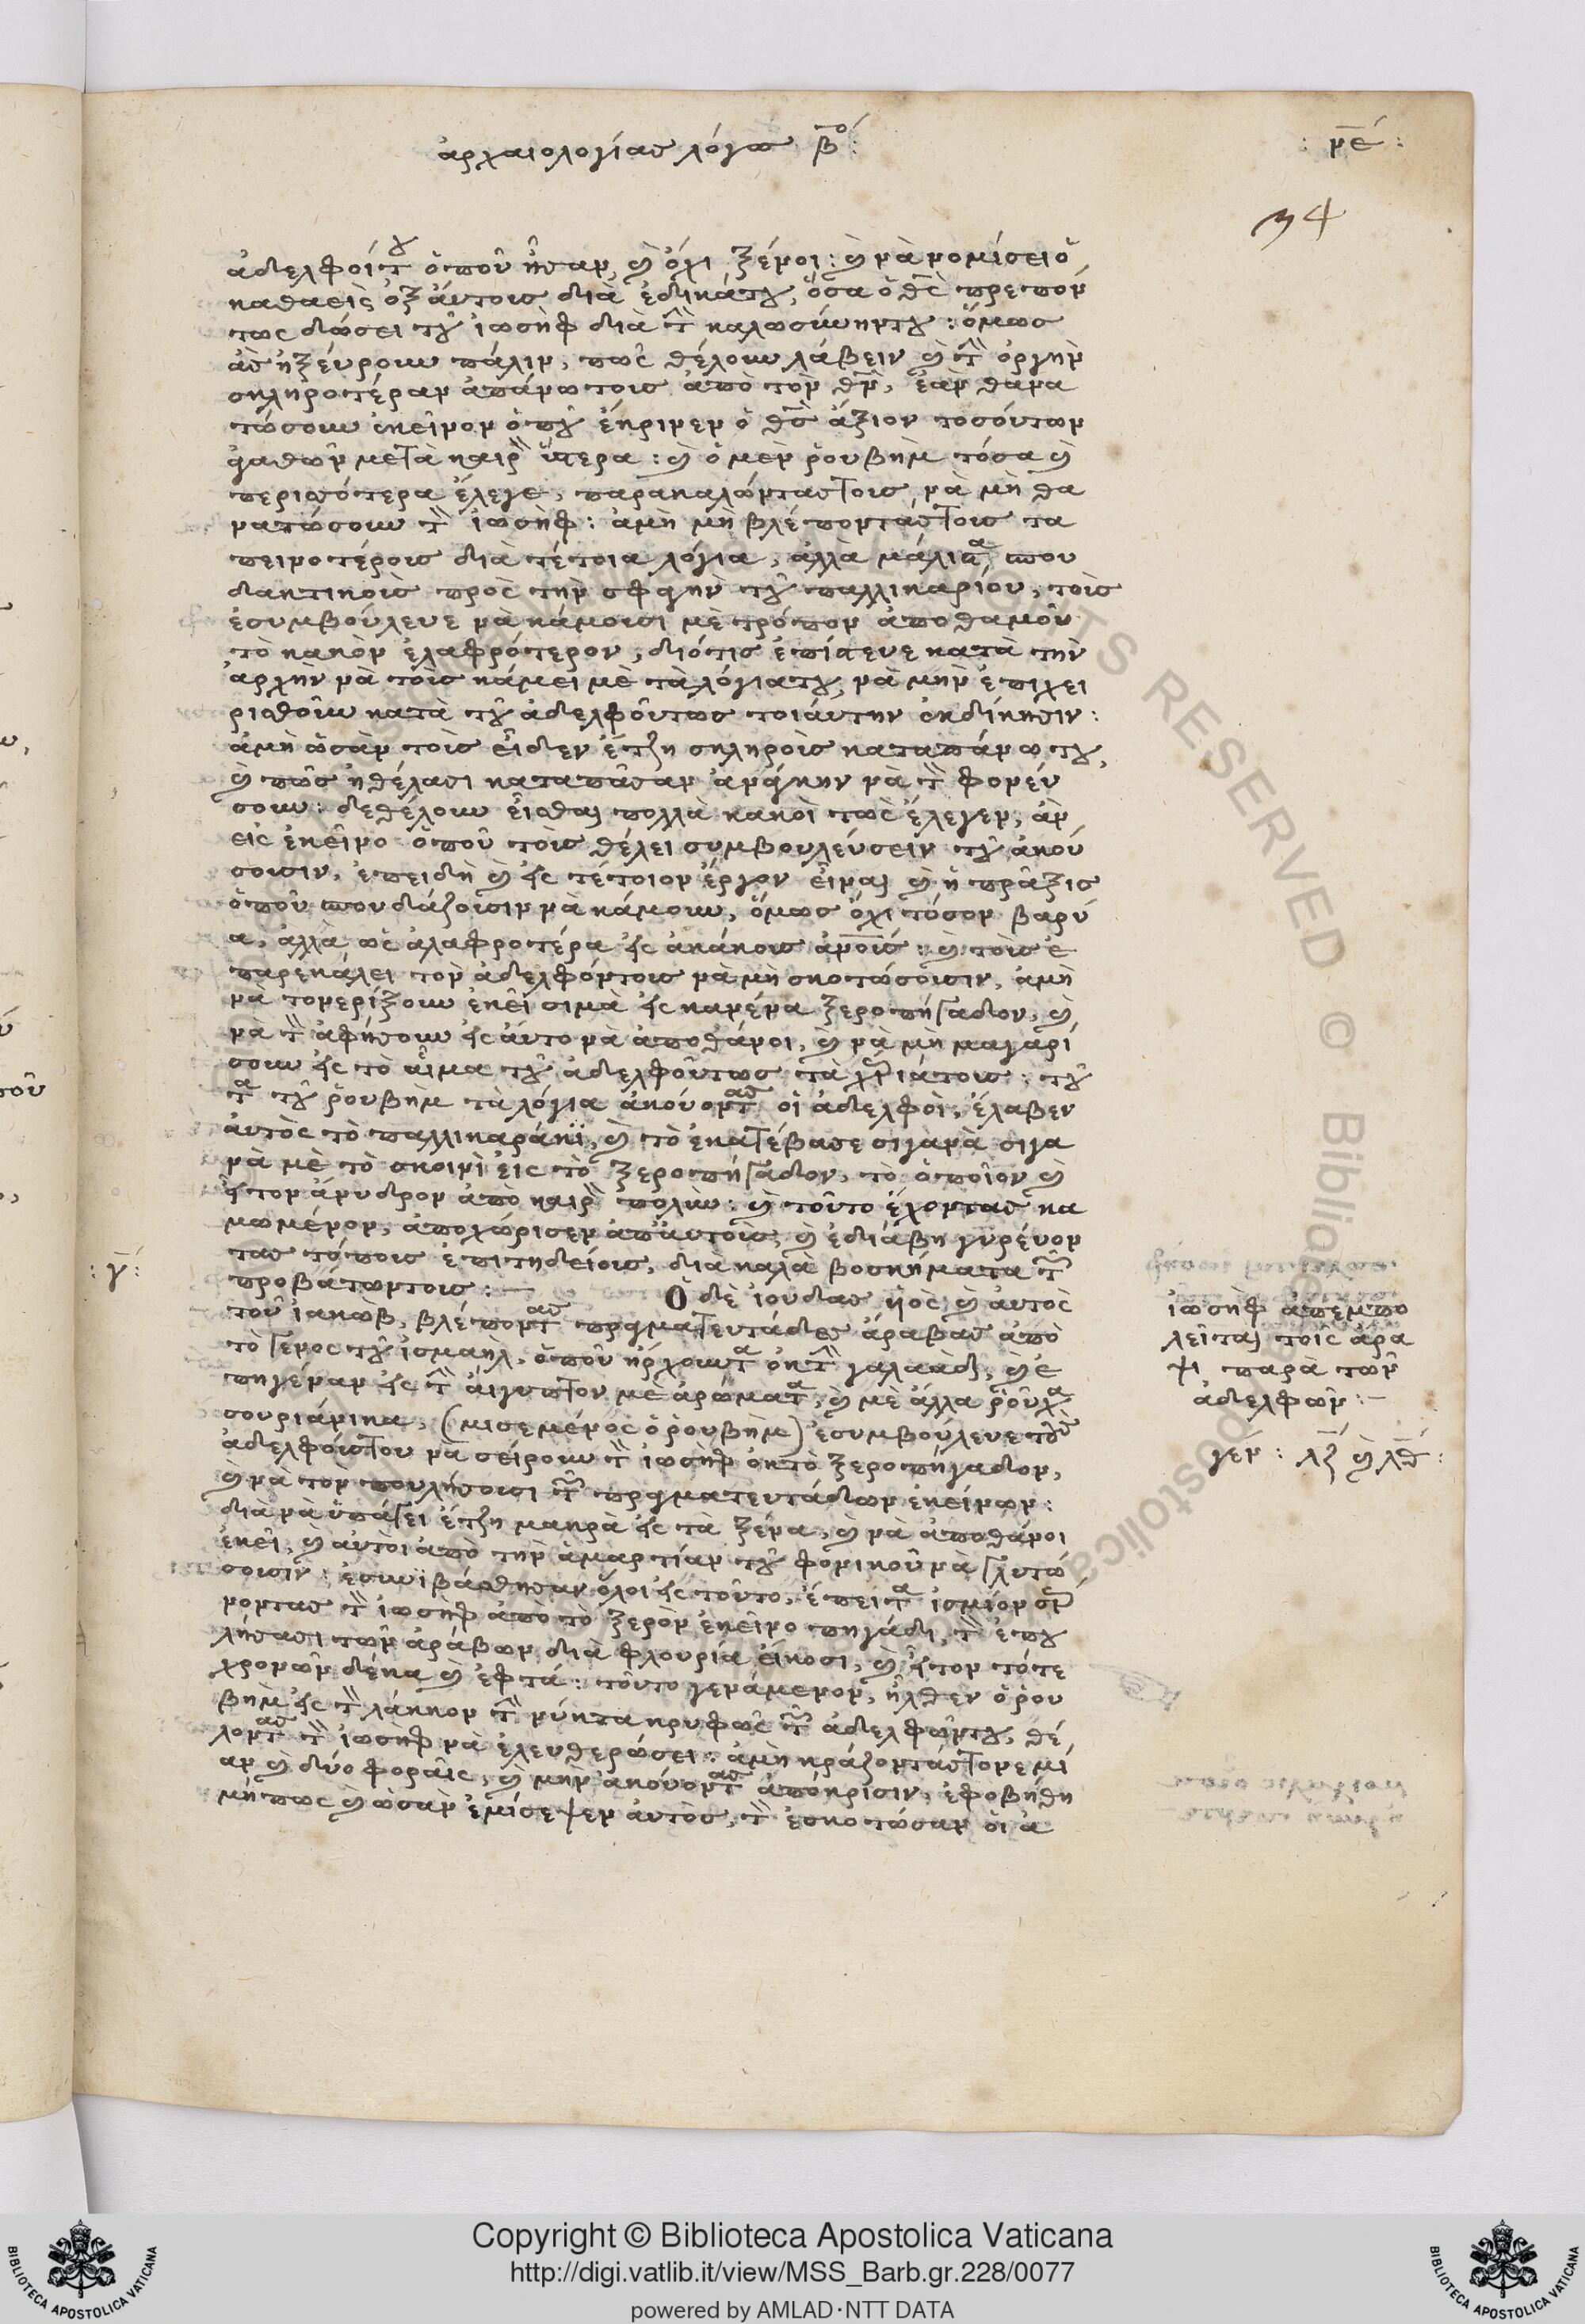 ἀρχαιολογίας λόγος β^ος:
: με :
74
ἀδελφοί του ὁποῦ ἦσαν, καὶ ὄχι ξένοι: καὶ νὰ νομίσει ὁ
καθαεὶς ἐξ αὐτοὺς διὰ ἐδικά του, ὅσα ὁ θς πρέπον
τως δώσει τοῦ ἰωσὴφ διὰ τὴν καλωσύνην του: ὅμως
ἂς ἠξεύρουν πάλιν, πῶς θέλουν λάβειν καὶ τὴν ὀργὴν
σκληροτέραν ἀπάνω τους ἀπὸ τὸν θν, ἐὰν θανα
τώσουν ἐκεῖνον ὁποῦ ἔκρινεν ὁ θς ἄξιον τοσούτων
ἀγαθῶν μετὰ καιρὸν ὕστερα: καὶ ὁ μὲν ῥουβὴμ τόσα καὶ
περισσότερα ἔλεγε, παρακαλώντας τους νὰ μὴ θα
νατώσουν τὸν ἰωσὴφ: ἀμὴ μὴ βλέποντάς τους τα
πεινοτέρους διὰ τέτοια λόγια, ἀλλὰ μάλιστα σπου
δακτικοὺς πρὸς τὴν σφαγὴν τοῦ παλλικαρίου, τοὺς
ἐσυμβούλευε νὰ κάμουσι μὲ τρόπον ἀποθαμοῦ
τὸ κακὸν ἐλαφρότερον, διότις ἐπίστευε κατὰ τὴν
ἀρχὴν νὰ τοὺς κάμει μὲ τὰ λόγια του, νὰ μὴν ἐπιχει
ρισθοῦν κατὰ τοῦ ἀδελφοῦ τως τοιαύτην ἐκδίκησιν:
ἀμὴ ὡσὰν τοὺς εἶδεν ἔτζη σκληροὺς καταπάνω του,
καὶ πῶς ἠθέλασι καταπᾶσαν ἀνάγκην νὰ τὸν φονεύ
σουν: δε θέλουν εἶσθαι πολλὰ κακοὶ τῶς ἔλεγεν, ἂν
εἰς ἐκεῖνο ὁποῦ τοὺς θέλει συμβουλεύσειν τοῦ ἀκού
σουσιν, ἐπειδὴ καὶ εἰς τέτοιον ἔργον εἶναι καὶ ἡ πρᾶξις
ὁποῦ σπουδάζουσιν νὰ κάμουν, ὅμως ὄχι τόσον βαρύ
α, ἀλλὰ ὡς ἀλαφροτέρα εἰς ἀκάκους ἀνους: καὶ τοὺς ἐ
παρεκάλει τὸν ἀδελφόν τους νὰ μὴ σκοτώσουσιν, ἀμὴ
νὰ τὸν ερίξουν ἐκεῖ σιμὰ εἰς κανένα ξεροπήγαδον, καὶ
νὰ τὸν ἀφήσουν εἰς αὐτο νὰ ἀποθάνοι, καὶ νὰ μὴ μαγαρί
σουν εἰς τὸ αἷμα τοῦ ἀδελφοῦ τως τὰ χέριά τους: τοῦ
τα τοῦ ῥουβὴμ τὰ λόγια ἀκούοντας οἱ ἀδελφοὶ, ἔλαβεν
αὐτὸς τὸ παλλικαράκϊ, καὶ τὸ ἐκατέβασε σιγανὰ σιγα
νὰ μὲ τὸ σκοινὶ εἰς τὸ ξεροπήγαδον, τὸ ὁποῖον καὶ
ἦτον ἄνυδρον ἀπὸ καιρὸν πολὺν: καὶ τοῦτο ἔχοντας κα
μωμένον, ἀποχώρισεν ἀπαὐτοὺς, καὶ ἐδιάβη γυρεύον
τας τόπους ἐπιτηδείους, διὰ καλὰ βοσκήματα τῶν
προβάτων τους: Ὁ δὲ ἰούδας ὑιὸς καὶ αὐτὸς
τοῦ ἰακὼβ, βλέποντας πραγματευτάδες ἄραβας ἀπὸ
τὸ γένος τοῦ ἰσμαὴλ, ὁποῦ ἤρχουντα ἐκ τὴν γαλαὰδ, καὶ ἐ
πηγέναν εἰς τὴν αἴγυπτον μὲ ἀρώματα, καὶ μὲ ἄλλα ροῦχα
σουριάνικα, (μισεμένος ὁ ρουβὴμ) ἐσυμβούλευε τοὺς
ἀδελφούς του νὰ σείρουν τὸν ἰωσὴφ ἐκ τὸ ξεροπήγαδον,
καὶ νὰ τὸν πουλήσουσι τῶν πραγματευτάδων ἐκείνων:
διὰ νὰ ὑπάγει ἔτζη μακρὰ εἰς τὰ ξένα, καὶ νὰ ἀποθάνοι
ἐκεῖ, καὶ αὐτοὶ ἀπὸ τὴν ἁμαρτίαν τοῦ φονικοῦ νὰ γλυτώ
σουσιν: ἐσυνιβάσθησαν ὅλοι εἰς τοῦτο, ἔπειτα
νοντας τὸν ἰωσὴφ ἀπὸ τὸ ξερὸν ἐκεῖνο πηγάδι, τὸν ἐπου
λήσασι τῶν ἀράβων διὰ φλουρία εἴκοσι, καὶ ἦτον τότε
χρονῶν δέκα καὶ ἑφτά: τοῦτο γενάμενον, ἦλθεν ὁ ῥου
βὴμ εἰς τὸν λάκκον τὴν νύκτα κρυφῶς τῶν ἀδελφῶν του, θέ
λοντας τὸν ἰωσὴφ νὰ ἐλευθερώσει: ἀμὴ κράζοντάς τονε μί
αν καὶ δύο φοραῖς, καὶ μὴν ἀκούοντας ἀπόκρισιν, ἐφοβήθη
μήπως καὶ ὡσὰν ἐμίσεψεν αὐτὸς, τὸν ἐσκοτώσαν οἱ ἀ
: γ :
ἰωσὴφ ἀπεμπο
λεῖται τοῖς ἄρα
ψι παρὰ τῶν
ἀδελφῶν:
γεν: λζ καὶ λθ:
Copyright © Biblioteca Apostolica Vaticana
http://digi.vatlib.it/view/MSS_Barb.gr.228/0077
powered by AMLAD·NTT DATA
BIBLIOTECA APOSTOLICA VATICANA
BIBLIOTECA APOSTOLICA VATICANA